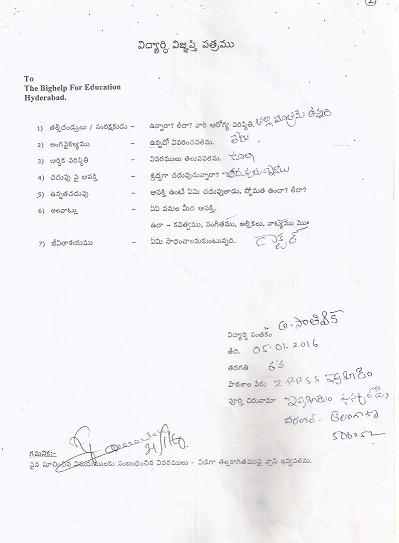 విద్యార్థి విజ్ఞప్తి పత్రము
To
The Bighelp For Education
Hyderabad.
1) తల్లిదండ్రులు / సంరక్షకుడు - ఉన్నారా? లేదా? వారి ఆరోగ్య పరిస్థితి. తల్లి మాత్రమే ఉన్నది
2) అంగవైకల్యము - ఉన్నచో వివరించవలెను. లేదు
3) ఆర్థిక పరిస్థితి - వివరములు తెలుపవలెను. కూలి
4) చదువు పై ఆసక్తి - శ్రద్ధగా చదువుచున్నారా?
5) ఉన్నతచదువు - ఆసక్తి ఉంటే ఏమి చదువుతాడు, స్తోమత ఉందా? లేదా?
6) అలవాట్లు - ఏఏ పనుల మీద ఆసక్తి.
ఉదా - కవిత్వము, సంగీతము, అల్లికలు, నాట్యము
7) జీవితాశయము - ఏమి సాధించాలనుకుంటున్నది. డాక్టర్
విద్యార్థి సంతకం
తేది. 05-01-2016
తరగతి 6వ
పాఠశాల పేరు Z.P.P.S.S
పూర్తి చిరునామా
వరంగల్ - తెలంగాణ
గమనిక:-
పైన సూచించిన విషయములకు సంబంధించిన వివరములు - విడిగా తెల్లకాగితముపై వ్రాసి ఇవ్వవలెను.